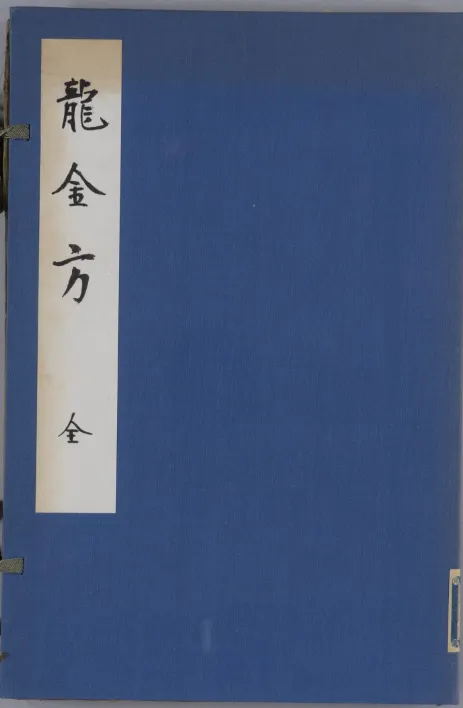 龍金方 全